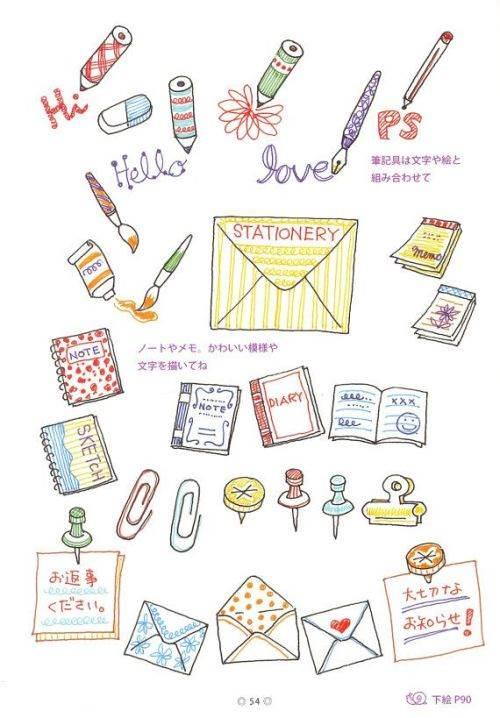 Hi
Hello
love
PS
筆記具は文字や絵と
組み合わせて
STATIONERY
memo
ノートやメモ。かわいい模様や
文字を描いてね
NOTE
NOTE
DIARY
xxx
SKETCH
お返事
ください。
大切な
お知らせ!
◎ 54 ◎
下絵 P90